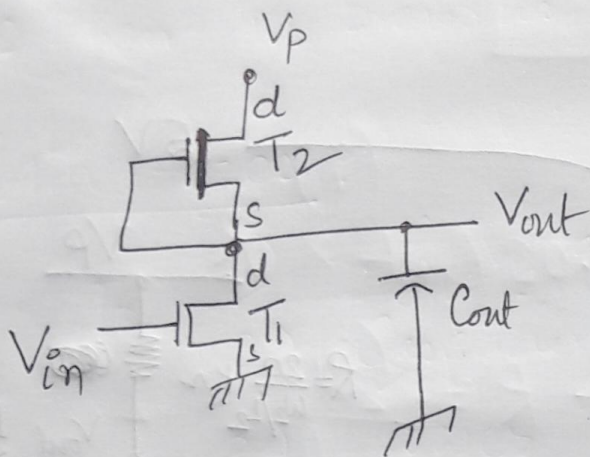 Vp
d
T2
s
Vout
d
T1
Cout
Vin
s